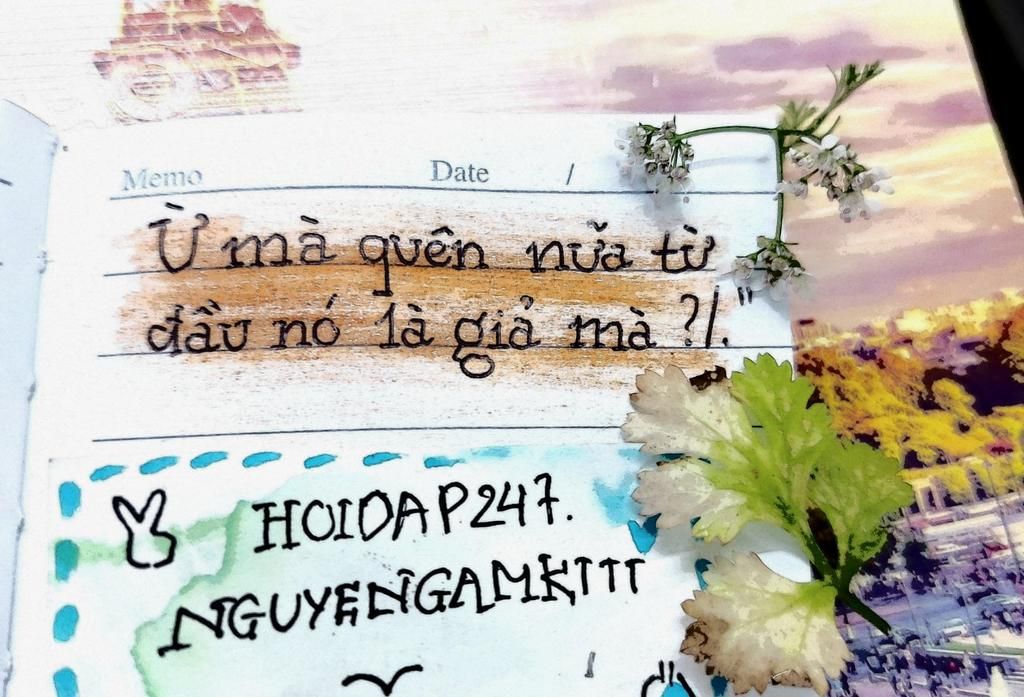 Memo Date /
Ừ mà quên nữa từ
đầu nó là giả mà ?!."
HOIDAP247.
NGUYENGAMKTTT